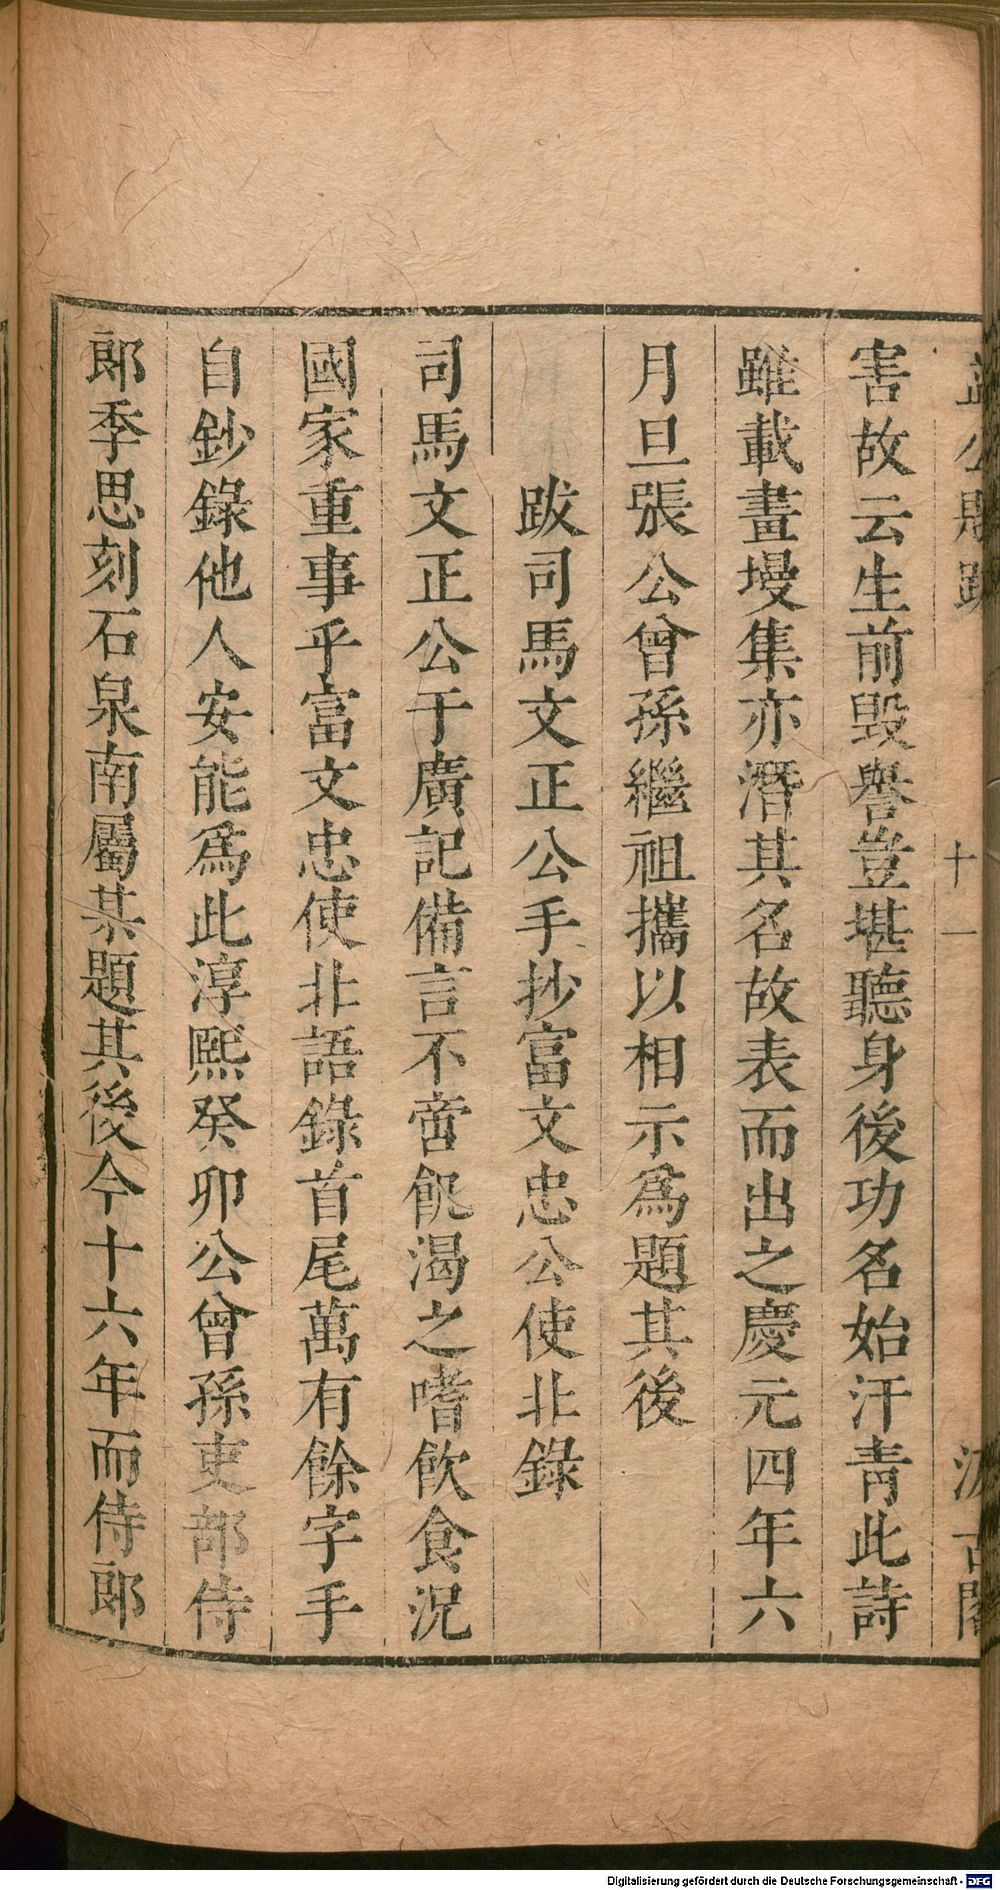 益公題跋　十一　汲古閣
害故云生前毀譽豈堪聽身後功名始汗青此詩
雖載畫墁集亦潛其名故表而出之慶元四年六
月旦張公曾孫繼祖攜以相示爲題其後
跋司馬文正公手抄富文忠公使北錄
司馬文正公于廣記備言不啻飢渴之嗜飲食況
國家重事乎富文忠使北語錄首尾萬有餘字手
自鈔錄他人安能爲此淳熙癸卯公曾孫吏部侍
郎季思刻石泉南屬某題其後今十六年而侍郎
Digitalisierung gefördert durch die Deutsche Forschungsgemeinschaft - DFG